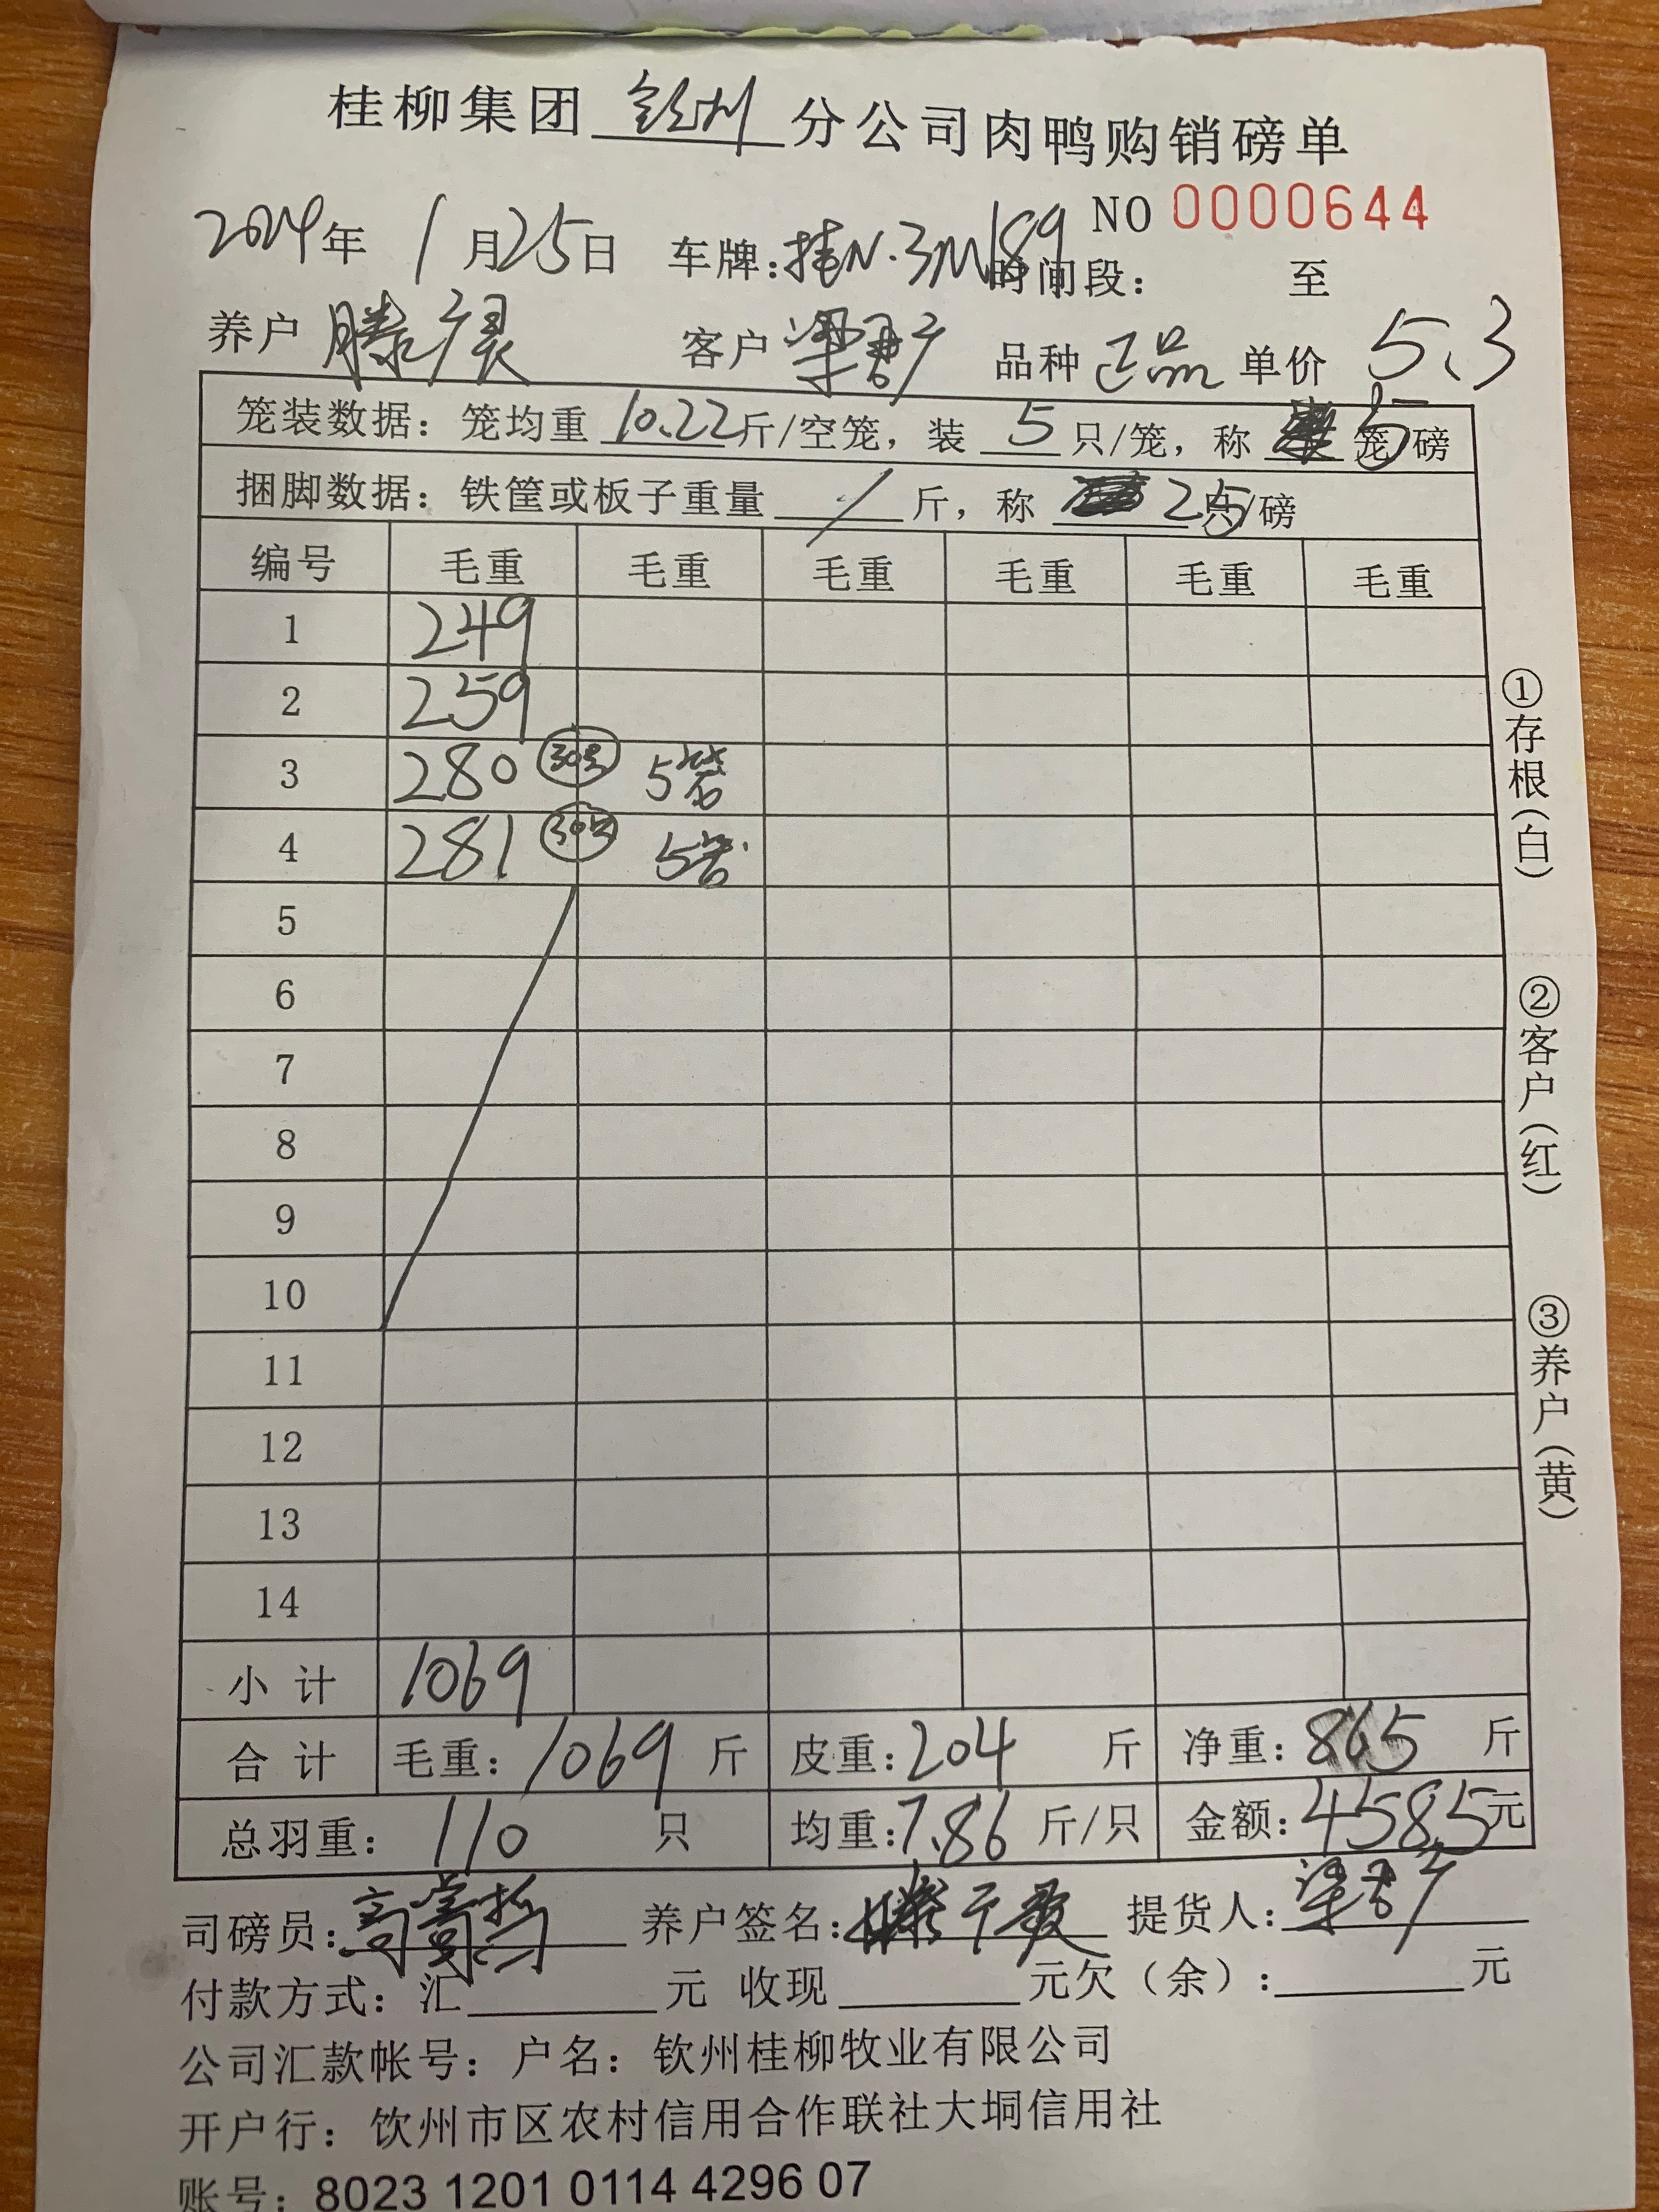 桂柳集团 钦州 分公司肉鸭购销磅单
NO 0000644
2024年 1月25日 车牌:桂N.3M189 时间段: 至
养户 滕 客户 梁 品种 正品 单价 5.3
笼装数据: 笼均重 10.22 斤/空笼, 装 5 只/笼, 称 5 笼/磅
捆脚数据: 铁筐或板子重量 / 斤, 称 25 只/磅
编号 毛重 毛重 毛重 毛重 毛重 毛重
1 249
2 259
3 280 30只 5
4 281 30只 5
5
6
7
8
9
10
11
12
13
14
小计 1069
合计 毛重: 1069 斤 皮重: 204 斤 净重: 865 斤
总羽重: 110 只 均重: 7.86 斤/只 金额: 4585元
司磅员: 高 养户签名: 滕 提货人: 梁
付款方式: 汇 元 收现 元欠(余): 元
公司汇款帐号: 户名: 钦州桂柳牧业有限公司
开户行: 钦州市区农村信用合作联社大垌信用社
账号: 8023 1201 0114 4296 07
①存根(白)
②客户(红)
③养户(黄)